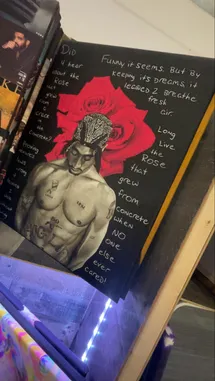 Did
u hear
about the
Rose
that
grew
from
a
crack
in
the
concrete?
Proving
nature's
law
Funny it seems. But By
keeping it's dreams, it
learned 2 Breathe
fresh
air.
Long
Live
the
Rose
that
grew
from
concrete
when
NO
one
else
ever
cared!